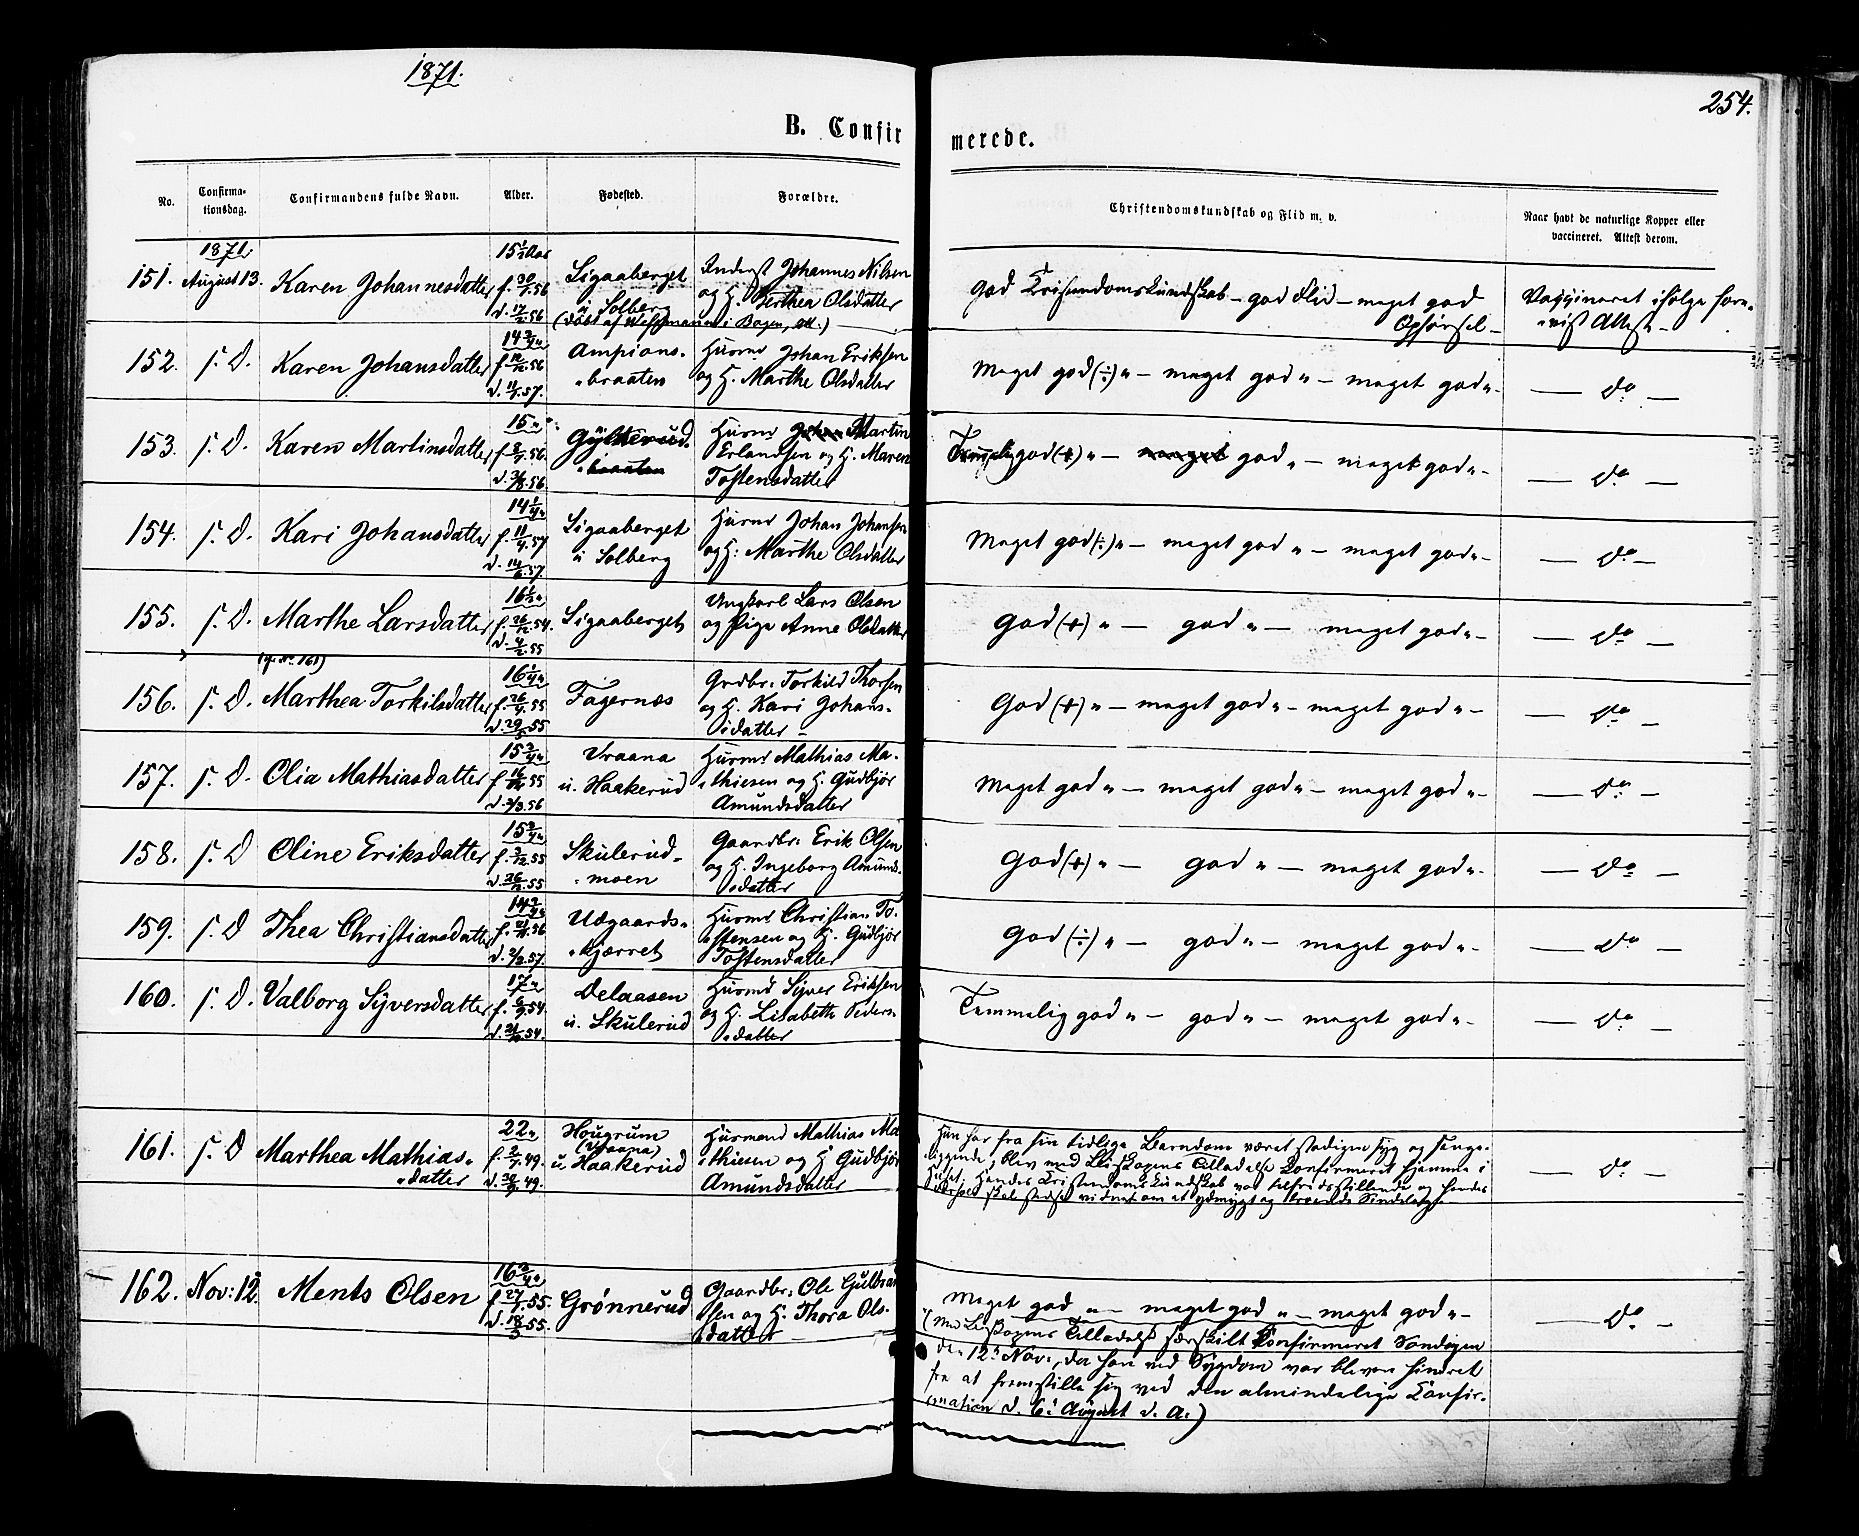 1871.
254.
B. Confir
merede.
No. Confirma-tionsdag. Confirmandens fulde Navn. Alder. Fødested. Forældre. Christendomskundskab og Flid m. v. Naar havt de naturlige Kopper eller vaccineret. Attest derom.
1871
151. August 13. Karen Johannesdatter 15½ Aar f. 30/1.56 d. 17/2.56 Ligaaberget u Solberg Inderst Johannes Nilsen og H. Berthea Olsdatter God Kristendomskundskab – god Flid – meget god Opførsel –
(døbt af i Bogen, att.)
152. s. D. Karen Johansdatter 14¾ " f. 12/12.56 d. 11/1.57. Ampions-braaten Husmd Johan Eriksen og H. Marthe Olsdatter Meget god (÷) " – meget god " – meget god " – — do —
153. s. D. Karen Martinsdatter 15 " Gylterud. braaten Husmd Johan Martin Erlandsen og H. Maren Tostensdatter Temmelig god (+) " – meget god " – meget god " – — do —
154. s. D. Kari Johansdatter 14¼ " f. 11/4.57 d. 14/6.57. Ligaaberget u Solberg Husmd Johan Johansen og H. Marthe Olsdatter Meget god (÷) " – meget god " – meget god " – — do —
155. s. D. Marthe Larsdatter 16½ " f. 26/12.54. d. 4/2.55 Ligaaberget Ungkarl Lars Olsen og Pige Anne Olsdatter God (+) " – god " – meget god " – — do —
(cfr. No. 161)
156. s. D. Marthea Torkilsdatter 16¼ " f. 26/4.55 d. 29/5.55 Fagernæs Grdbr. Torkild Thorsen og H. Kari Johans-datter – God (+) " – meget god " – meget god " – — do —
157. s. D. Olia Mathiasdatter 15¾ " f. 16/12.55 d. 2/3.56 Vraana u. Haakerud Husmd Mathias Ma-thiesen og H. Gudbjør Amundsdatter Meget god " – meget god " – meget god " – — do —
158. s. D Oline Eriksdatter 15¾ " f. 2/12.55 d. 26/12.55 Skulerud-moen Gaardbr. Erik Olsen og H. Ingeborg Amunds-datter God (+) " – god " – meget god " – — do —
159. s. D Thea Christiansdatter 14¾ " d. 2/2.57. Udgaards-kjærret Husmd Christian To-stensen og H. Gudbjør Tostensdatter God (÷) " – god " – meget god " – — do —
160. s. D. Valborg Syversdatter 17 " Delaasen u. Skulerud Husmd Syver Eriksen og H. Lisabeth Peders-datter Temmelig god " – god " – meget god " – — do —
161. s. D Marthea Mathias-datter 22 " f. 2/7.49. Hougrum (Vraana) u Haakerud Husmand Mathias Ma-thiesen og H Gudbjør Amundsdatter
Hun har fra sin tidlige Barndom været stadigen syg og senge-
liggende, blev med Biskopens Tilladelse Confirmeret hjemme i
Huset. Hendes Cristendomskundskab var tilfredsstillende og hendes
vidnet om et ydmygt og troende Sindelag
— do —
162. Nov: 12. Ments Olsen 16¾ " f. 27/1.55. d. 18/3.55. Grønnerud Gaardbr. Ole Gulbran-sen og H. Thora Ols-datter Meget god " – meget god " – meget god " – — do —
(Med Biskopens Tilladelse særskilt Confirmeret Søndagen
den 12te Nov:, da han ved Sygdom var bleven hindret
fra at fremstille sig ved den almindelige Confir-
mation d. 6te August d. A.)